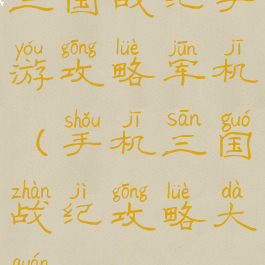 三国战纪手
yóu gōng lüè jūn jī
游攻略军机
shǒu jī sān guó
（手机三国
zhàn jì gōng lüè dà
战纪攻略大
quán